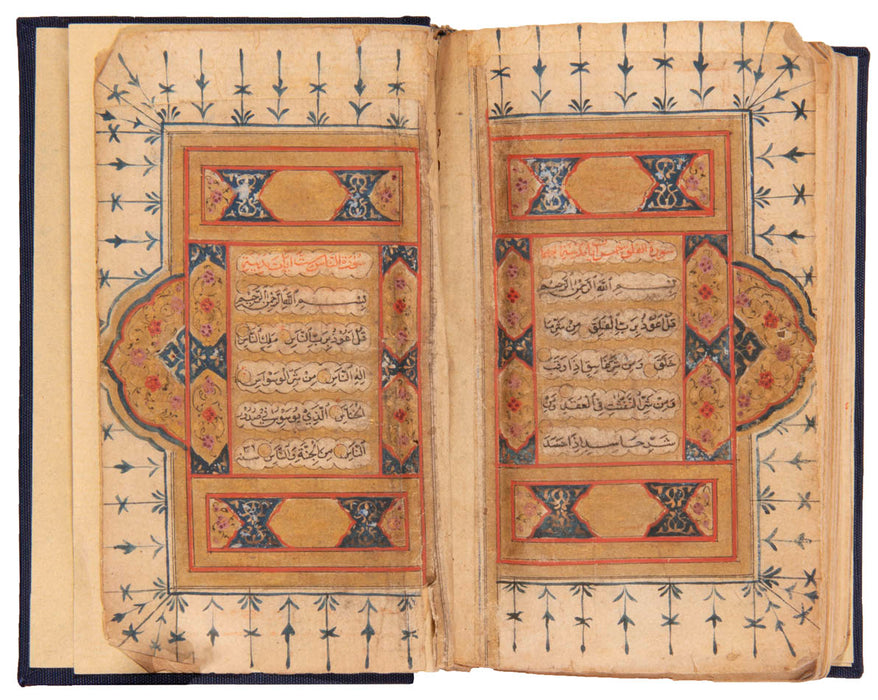 سورة الفلق خمس آيات مدنية
بِسْمِ اللهِ الرَّحْمٰنِ الرَّحِيمِ
قُلْ اَعُوذُ بِرَبِّ الْفَلَقِ مِنْ شَرِّ مَا
خَلَقَ وَمِنْ شَرِّ غَاسِقٍ اِذَا وَقَبَ
وَمِنْ شَرِّ النَّفّٰثٰتِ فِي الْعُقَدِ وَمِنْ
شَرِّ حَاسِدٍ اِذَا حَسَدَ
سورة الناس ست آيات مدنية
بِسْمِ اللهِ الرَّحْمٰنِ الرَّحِيمِ
قُلْ اَعُوذُ بِرَبِّ النَّاسِ مَلِكِ النَّاسِ
اِلٰهِ النَّاسِ مِنْ شَرِّ الْوَسْوَاسِ
الْخَنَّاسِ الَّذِي يُوَسْوِسُ فِي صُدُورِ
النَّاسِ مِنَ الْجِنَّةِ وَالنَّاسِ